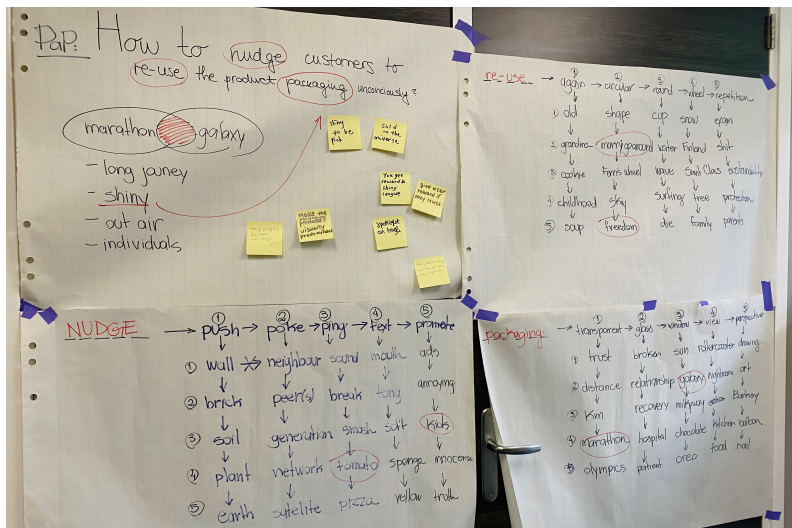 PaP: How to nudge customers to
re-use the product packaging unconciously?
marathon galaxy
- long jouney
- shiny
- out air
- individuals
shiny
to be
pick
Sold
in the
universe
You get
reward a
shiny
league
give user
reward if
they reuse
make the
product
visually
predominant
spotlight
on the
re-use → again → circular → round → wheel → repetition
① ② ③ ④ ⑤
① old shape cup snow again
② grandma mamygoround water Finland shit
③ cookie Ferris wheel wave Santa Claus sustainability
④ childhood sky surfing tree protection
⑤ soup freedom die family parents
NUDGE → push → poke → ping → text → promote
① ② ③ ④ ⑤
① wall neighbour sound mouth ads
② brick peer(s) break tony annoying
③ soil generation smash soft kids
④ plant network tomato sponge innocense
⑤ earth satelite pizza yellow truth
packaging: → transparent → glass → window → view → perspective
① ② ③ ④ ⑤
① trust broken sun rollercoaster drawing
② distance relationship galaxy nightmare art
③ Km recovery milkyway Banksy
④ marathon hospital chocolate kitchen balloon
⑤ olympics patient oreo food nail